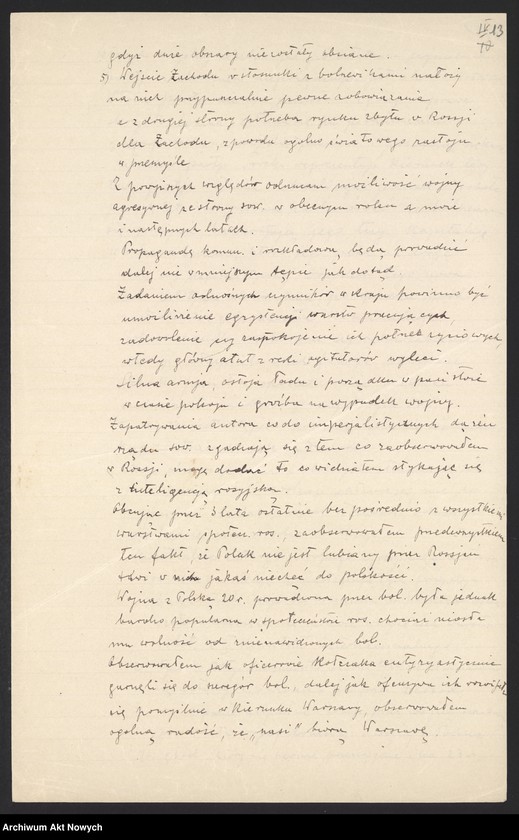 IV 13
gdyż duże obszary nie zostały obsiane.
5) Wejście Zachodu w stosunki z bolszewikami nałoży
na nich przypuszczalnie pewne zobowiązania
a z drugiej strony potrzeba rynku zbytu w Rosji
dla Zachodu, z powodu ogólno światowego zastoju
w przemyśle.
Z powyższych względów odrzucam możliwość wojny
agresywnej ze strony sow. w obecnym roku a może
i następnych latach.
Propagandę komun. i rozkładową, będą prowadzić
dalej nie w mniejszym tempie jak dotąd.
Zadaniem czynników w kraju powinno być
umożliwienie egzystencji warstw pracujących,
zadowolenie zaspokojenie ich potrzeb życiowych,
wtedy główny atut z ręki agitatorów wyleci.
Silna armja, ostoja ładu i porządku w państwie
w czasie pokoju i groźba na wypadek wojny.
Zapatrywania autora co do imperjalistycznych dążeń
rządu sow. zgadzają się z tem co zaobserwowałem
w Rosji, mogę dodać to co widziałem stykając się
z inteligencją rosyjską.
Obcując przez 3 lata ostatnie bezpośrednio z wszystkiemi
warstwami społecz. ros., zaobserwowałem przedewszystkiem
ten fakt, że Polak nie jest lubiany przez Rosjan
tkwi w nich jakaś niechęć do polskości.
Wojna z Polską 20 r. prowadzona przez bol. była jednak
bardzo popularna w społeczeństwie ros. chociaż niosła
mu wolność od znienawidzonych bol.
Obserwowałem jak oficerowie Kołczaka entuzyastycznie
garnęli się do szeregów bol., dalej jak ofenzywa ich
się pomyślnie w kierunku Warszawy, obserwowałem
ogólną radość, że „nasi" biorą Warszawę.
Archiwum Akt Nowych